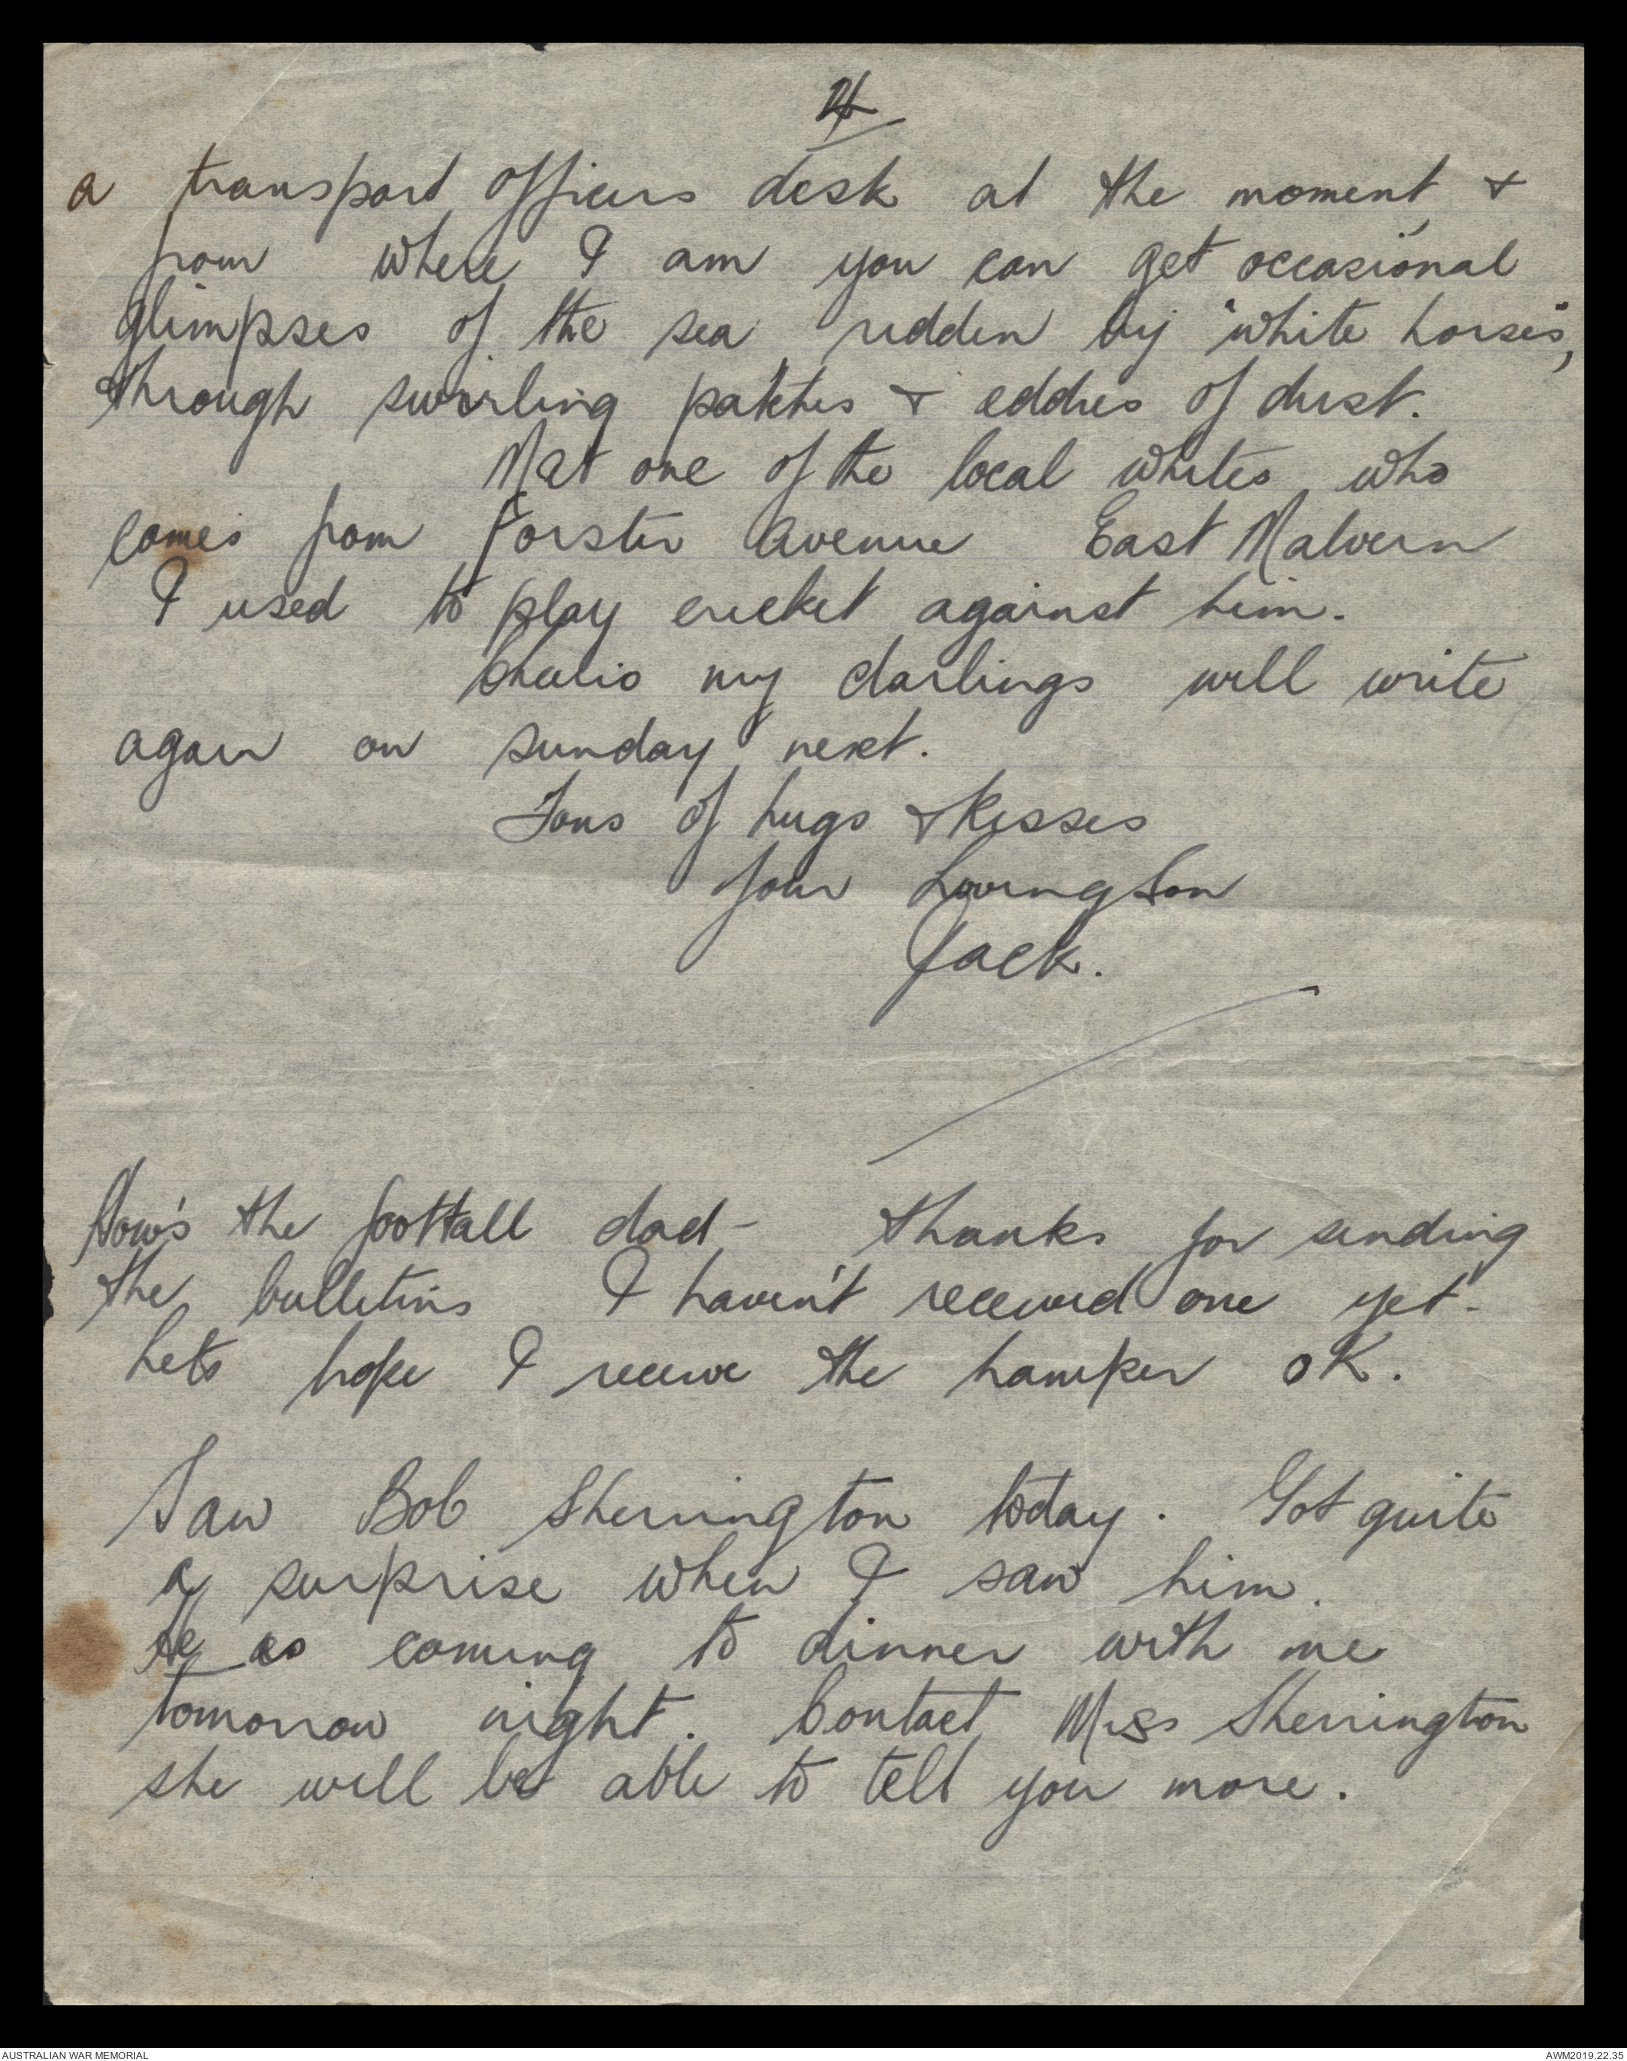 4
a transport officers desk at the moment &
from where I am you can get occasional
glimpses of the sea ridden by "white horses",
through swirling patches & eddies of dust.
Met one of the local whites who
comes from Forster Avenue East Malvern
I used to play cricket against him.
Cheerio my darlings will write
again on sunday next.
Tons of hugs & Kisses
Your Loving Son
Jack.
How's the football dad - Thanks for sending
the bulletins I haven't received one yet -
Lets hope I receive the hamper OK.
Saw Bob Sherrington today. Got quite
a surprise when I saw him.
He is coming to dinner with me
tomorrow night. Contact Miss Sherrington
she will be able to tell you more.
AUSTRALIAN WAR MEMORIAL
AWM2019.22.35